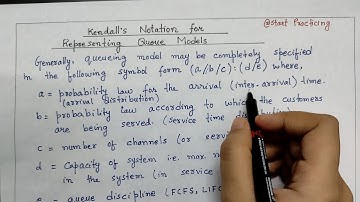 Kendall's Notation for
@start Practicing
Representing Queue Models
Generally, queueing model may be completely specified
in the following symbol form (a/b/c):(d/e) where,
a = probability law for the arrival (inter-arrival) time.
(arrival distribution)
b = probability law according to which the customers
are being served. (service time
c = number of channels (or
d = Capacity of system i.e. max. n
in the system (in service
queue discipline (FCFS, LIF